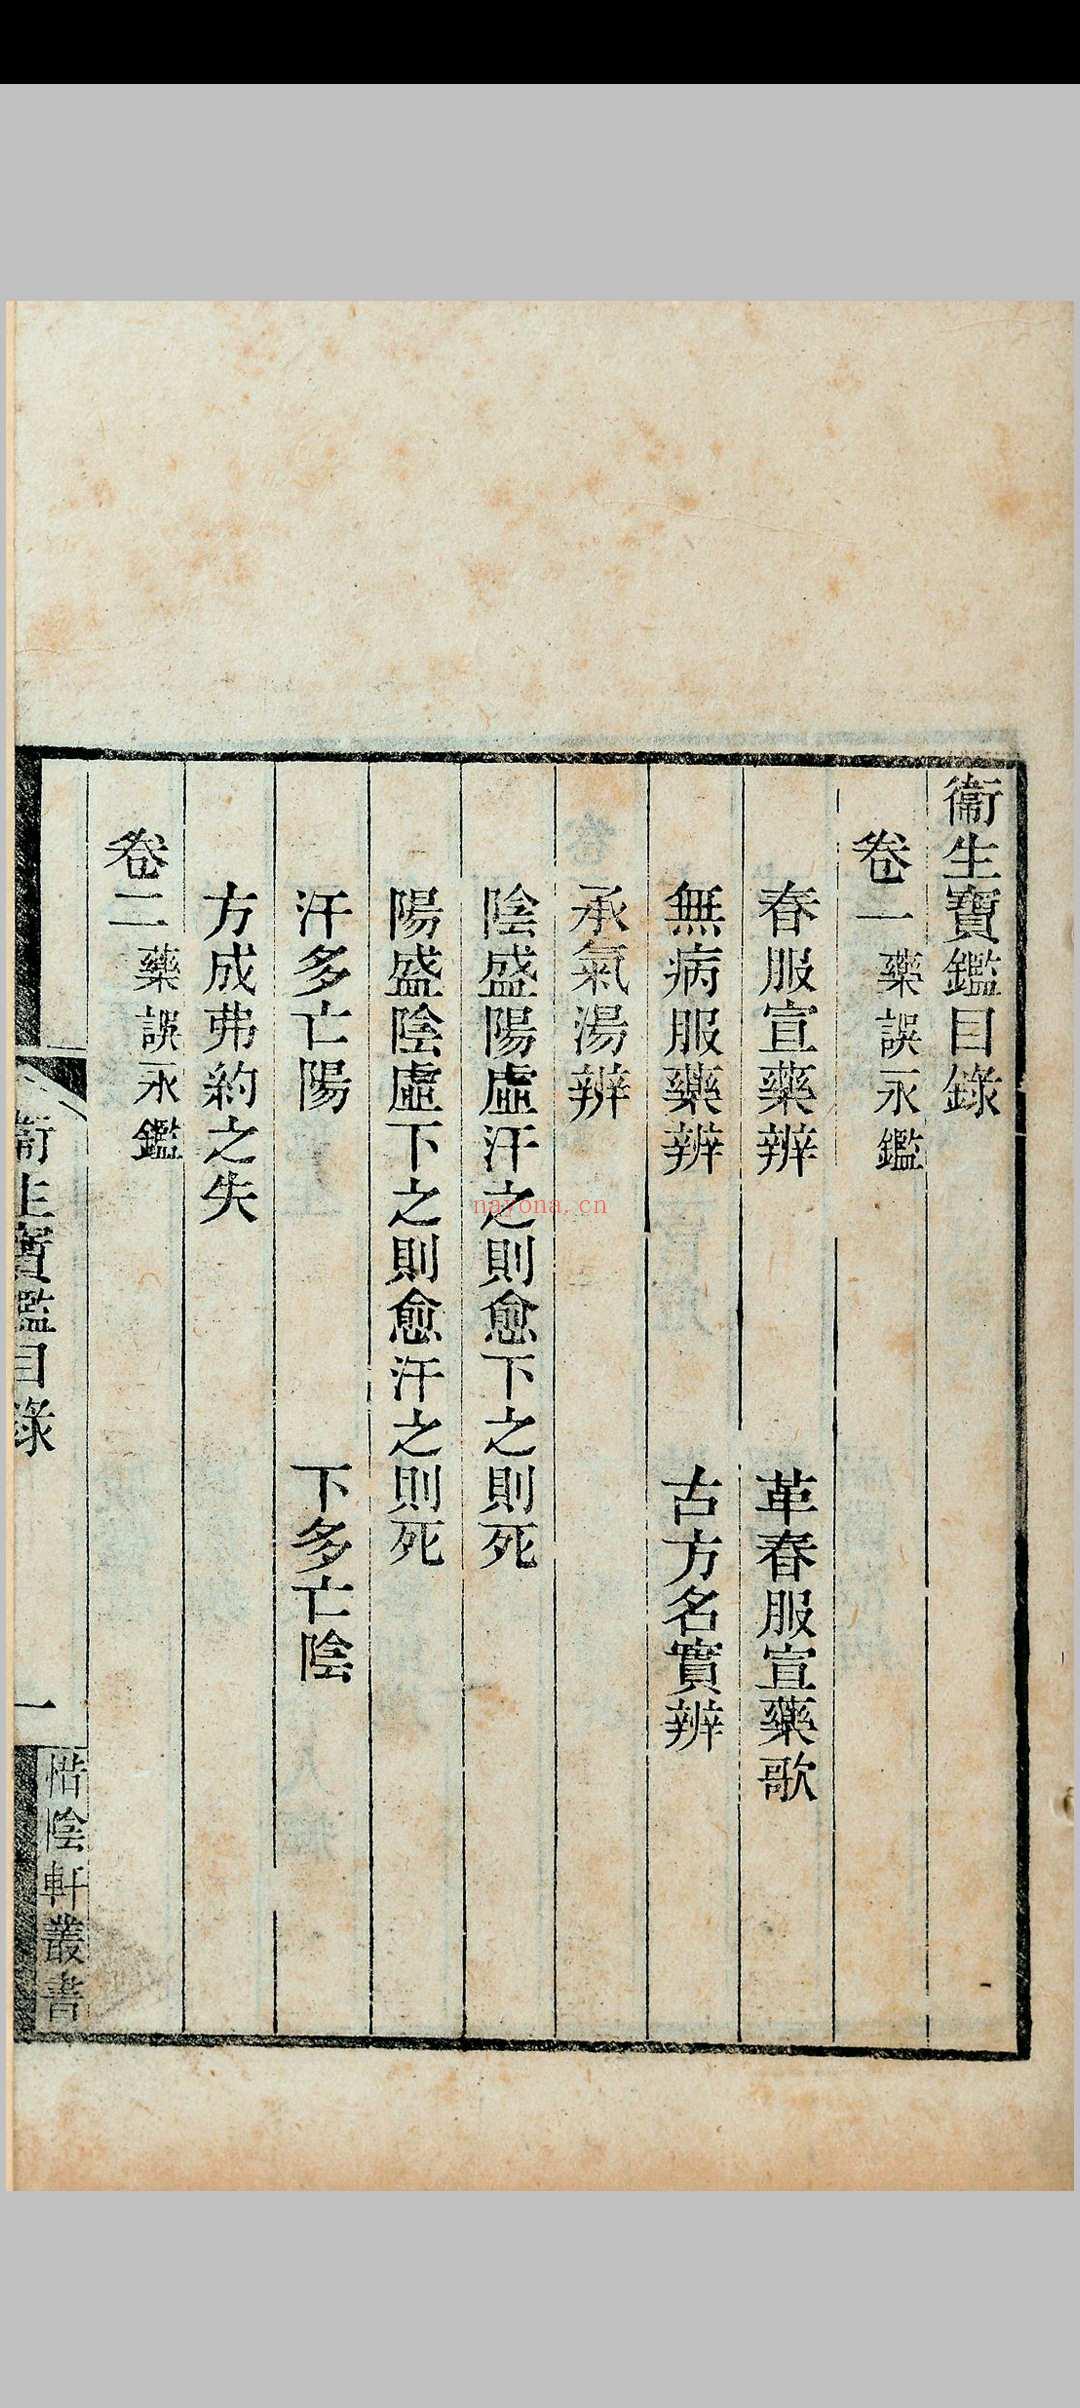 衞生寶鑑目錄
卷一 藥誤永鑑
春服宣藥辨 革春服宣藥歌
無病服藥辨 古方名實辨
承氣湯辨
陰盛陽虛汗之則愈下之則死
陽盛陰虛下之則愈汗之則死
汗多亡陽 下多亡陰
方成弗約之失
卷二 藥誤永鑑
衞生寶鑑目錄 一 惜陰軒叢書
nayona.cn